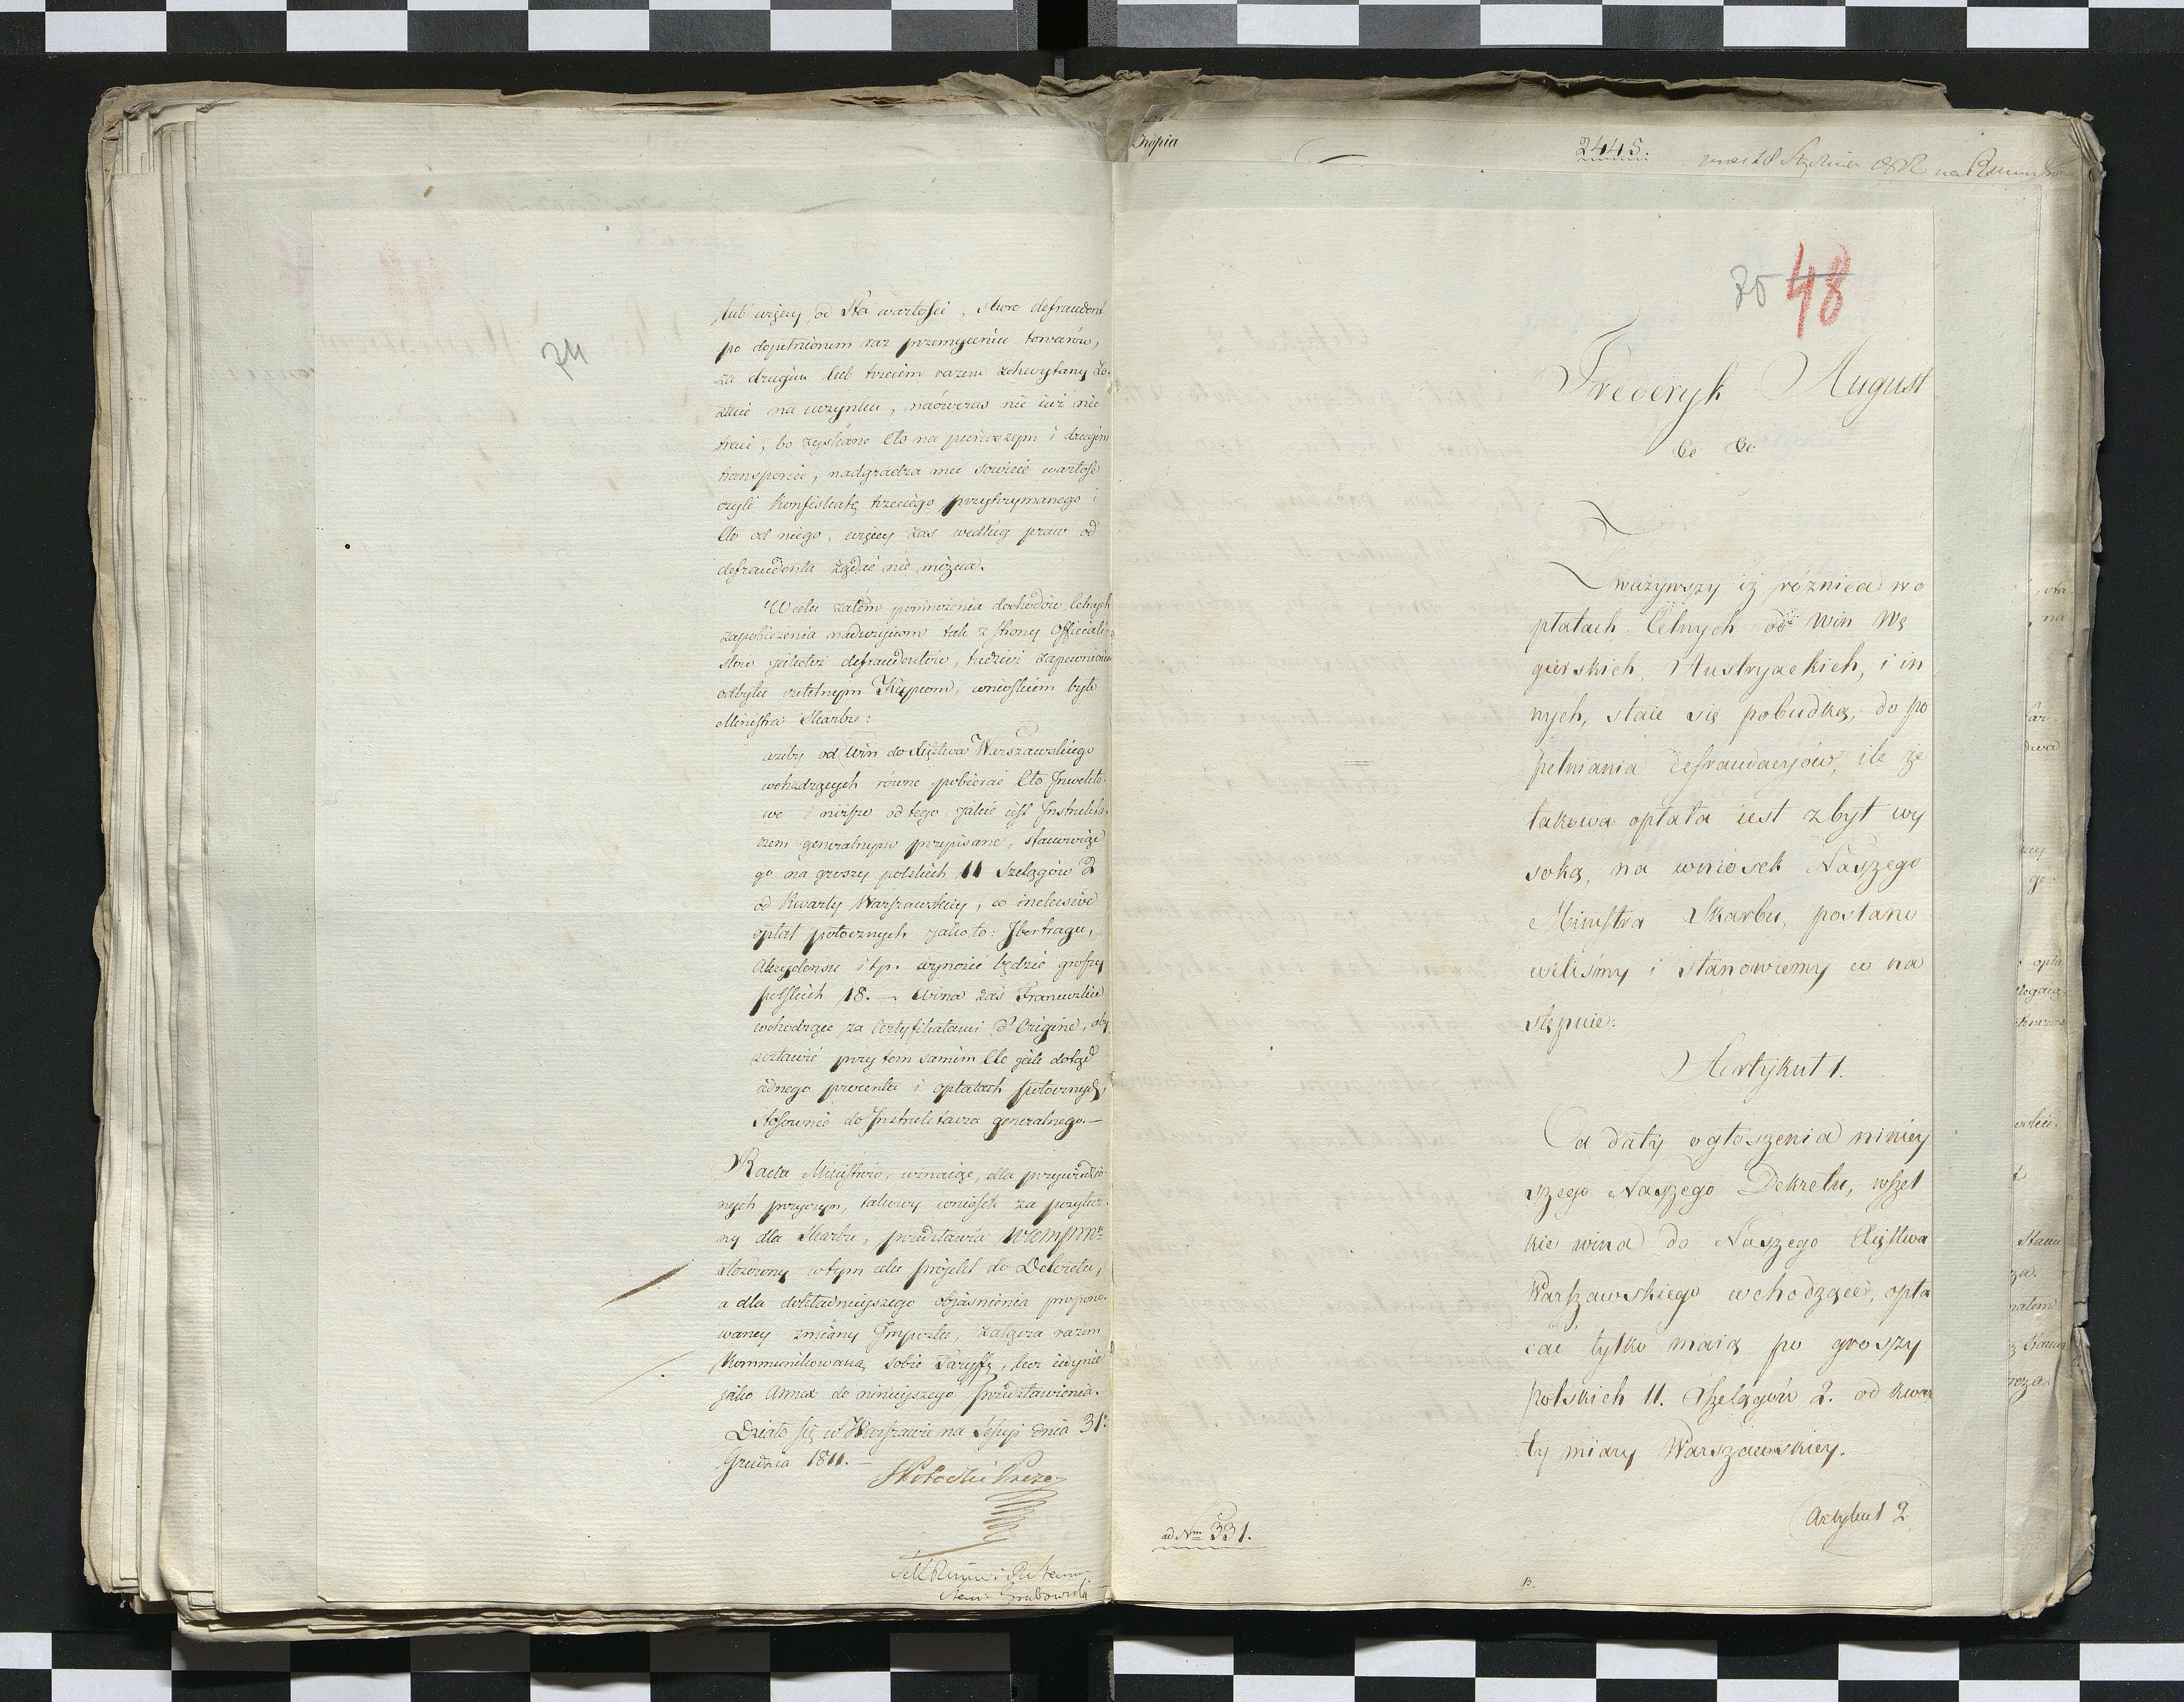 74
lub więcey od Sta wartości, skoro defraudent
po dopełnionem raz przemyceniu towarów,
za drugim lub trzecim razem schwytany zo-
stanie na uczynku, naówczas nic iuż nie
traci, bo zyskane Cło na pierwszym i drugim
transporcie, nadgradza mu sowicie wartość
czyli konfiskatę trzeciego przytrzymanego i
Cło od niego, więcey zaś według praw od
defraudenta żądać nie można.
W celu zatém pomnożenia dochodów Celnych
zapobieżenia nadużyciom tak z strony Officiali-
stów jakoteż defraudentów, tudzież zapewnienia
odbytu rzetelnym Kupcom, wnioskiem było
Ministra Skarbu:
ażeby od Win do Xięstwa Warszawskiego
wchodzących równe pobierać Cło Inwekto-
we i niższe od tego jakie iest Instrukta-
rzem generalnym przepisane, stanowiąc
go na groszy polskich 11 Szelągów 2
od Kwarty Warszawskiey, co inclusive
opłat potocznych jako to: Ibertragu,
Akcydensu itp. wynosić będzie groszy
polskich 18. — Wina zaś Francuzkie
wchodzące za Certyfikatami d'Origine, aby
zostawić przy tem samém Cle jak dotąd
iednego procentu i opłatach potocznych,
stosownie do Instruktarza generalnego. —
Rada Ministrów, uznaiąc, dla przywiedzio-
nych przyczyn, takowy wniosek za pożytecz-
ny dla Skarbu, przedstawia
stosowny w tym celu projekt do Dekretu,
a dla dokładnieyszego objaśnienia propono-
waney zmiany Impostu, załącza razem
kommunikowaną sobie Taryffę, lecz iedynie
jako Annex do ninieyszego przedstawienia.
Działo się w Warszawie na Sessyi dnia 31.
Grudnia 1811. —
Potocki Prezes
Grabowski
Kopia
2445.
75 48
Frederyk August
&c &c
Zważywszy iż różnica w o
płatach Celnych od Win Wę
gierskich, Austryackich, i in
nych, staie się pobudką, do po
pełniania defraudacyiów, ile że
takowa opłata iest zbyt wy
soką, na wniosek Naszego
Ministra Skarbu, postano
wiliśmy i stanowiemy co na
stępuie:
Artykuł 1.
Od daty ogłoszenia niniey
szego Naszego Dekretu, wszel
kie wina do Naszego Xięstwa
Warszawskiego wchodzące, opła
cać tylko maią po groszy
polskich 11. Szelągów 2. od kwar
ty miary Warszawskiey.
Artykuł 2
ad Nrm 331.